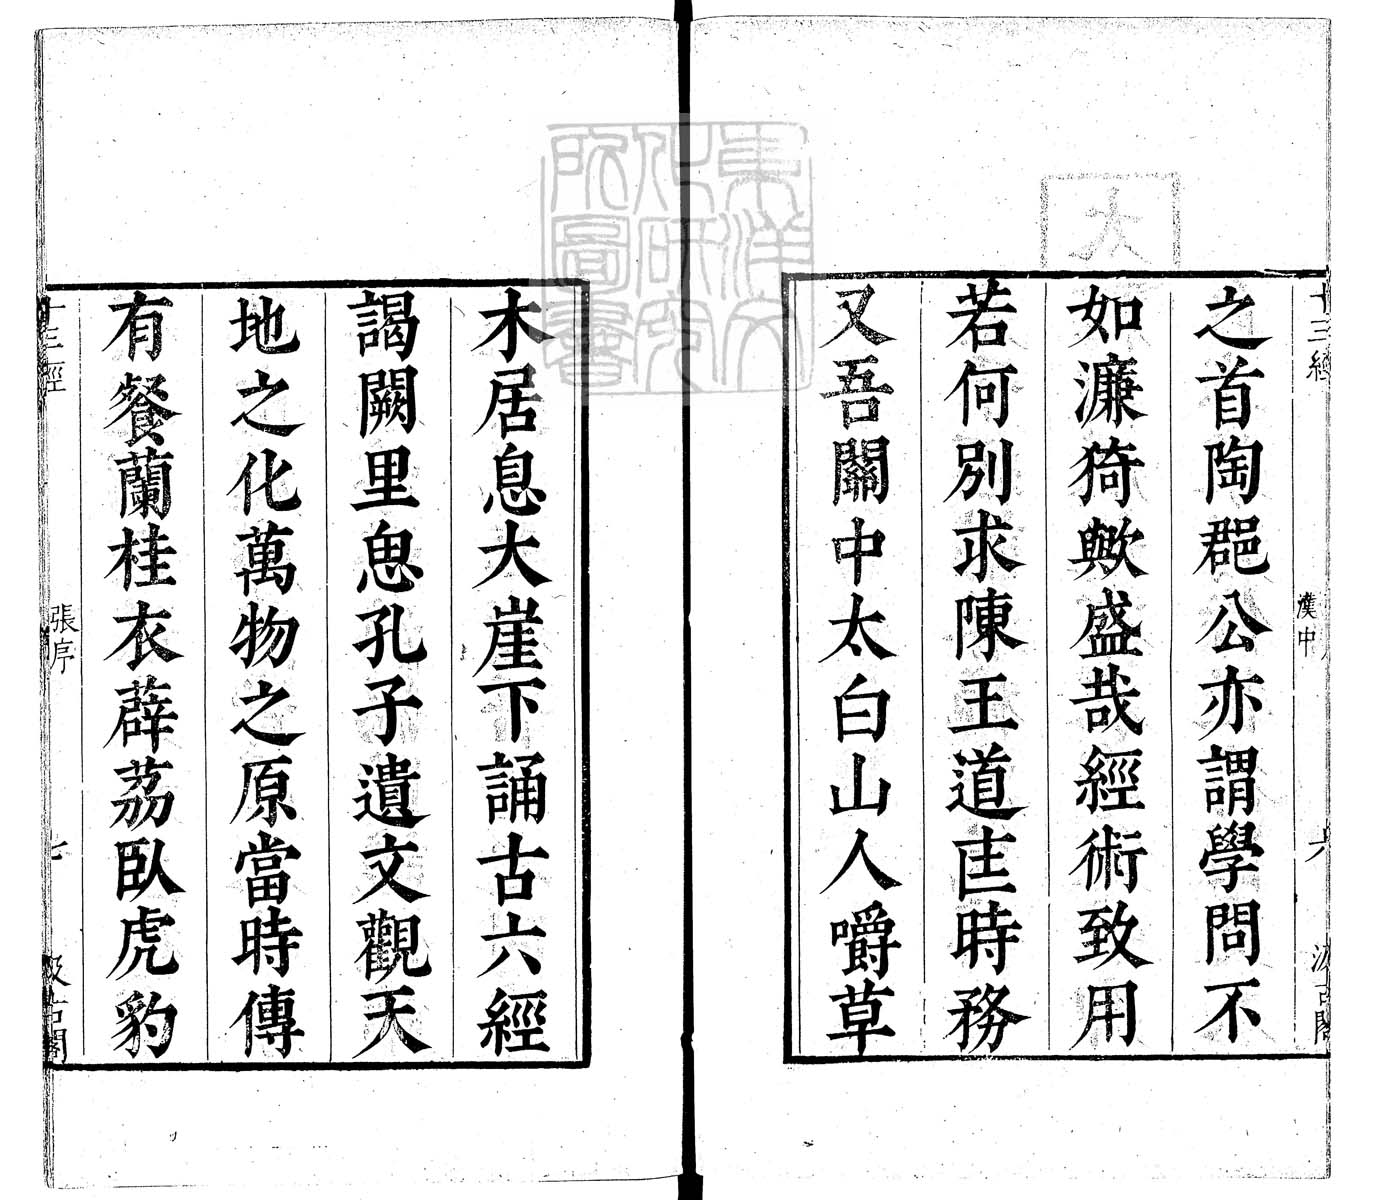 之首陶郡公亦謂學問不
如濂猗歟盛哉經術致用
若何別求陳王道匡時務
又吾關中太白山人嚼草
木居息大崖下誦古六經
謁闕里思孔子遺文觀天
地之化萬物之原當時傳
有餐蘭桂衣薜荔臥虎豹
十三經
張序
七
汲古閣
東洋文化研究所圖書